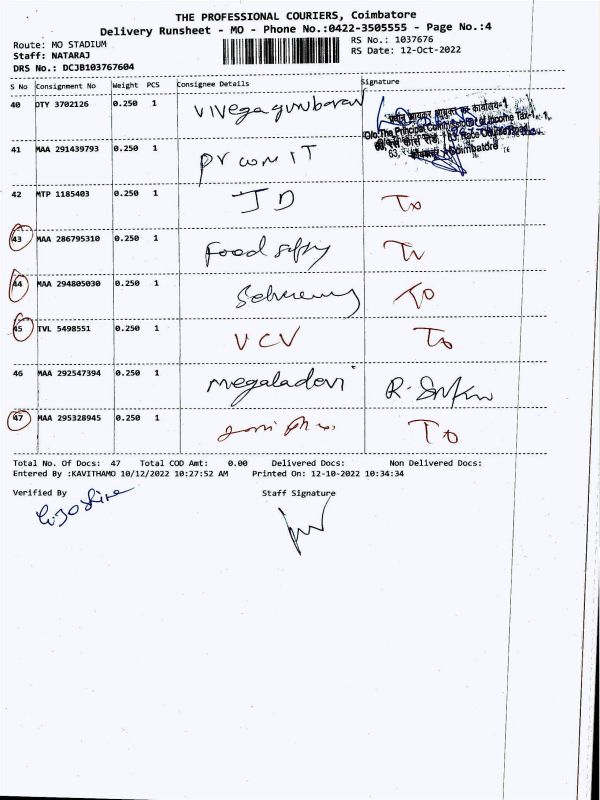 THE PROFESSIONAL COURIERS, Coimbatore
Delivery Runsheet - MO - Phone No.:0422-3505555 - Page No.:4
Route: MO STADIUM
Staff: NATARAJ
DRS No.: DCJB103767604
RS No.: 1037676
RS Date: 12-Oct-2022
S No Consignment No Weight PCS Consignee Details Signature
40 DTY 3702126 0.250 1
41 MAA 291439793 0.250 1 Pr com IT
O/o The Principal Commissioner of Income Tax-1,
63, Race Course Road
Coimbatore
42 MTP 1185403 0.250 1 JD To
43 MAA 286795310 0.250 1 Food To
44 MAA 294805030 0.250 1 To
45 TVL 5498551 0.250 1 VCV To
46 MAA 292547394 0.250 1 megaladevi
47 MAA 295328945 0.250 1 To
Total No. Of Docs: 47 Total COD Amt: 0.00 Delivered Docs: Non Delivered Docs:
Entered By :KAVITHAMO 10/12/2022 10:27:52 AM Printed On: 12-10-2022 10:34:34
Verified By Staff Signature